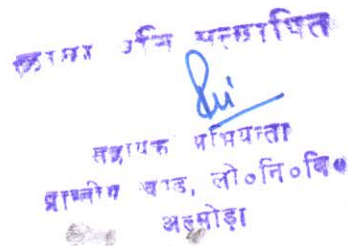 छाया प्रति सत्यापित
सहायक अभियन्ता
प्रान्तीय खण्ड, लो०नि०वि०
अल्मोड़ा